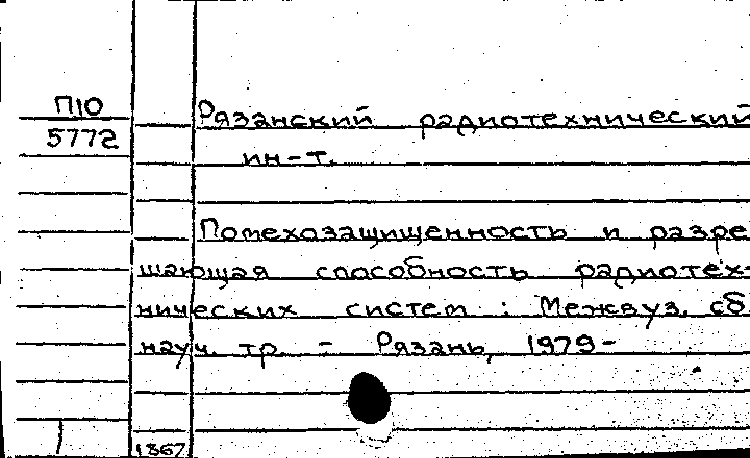 П10
5772
Рязанский радиотехнический
ин-т.
Помехозащищенность и разре
шающая способность радиотех-
нических систем : Межвуз. сб.
науч. тр. - Рязань, 1979-
1867